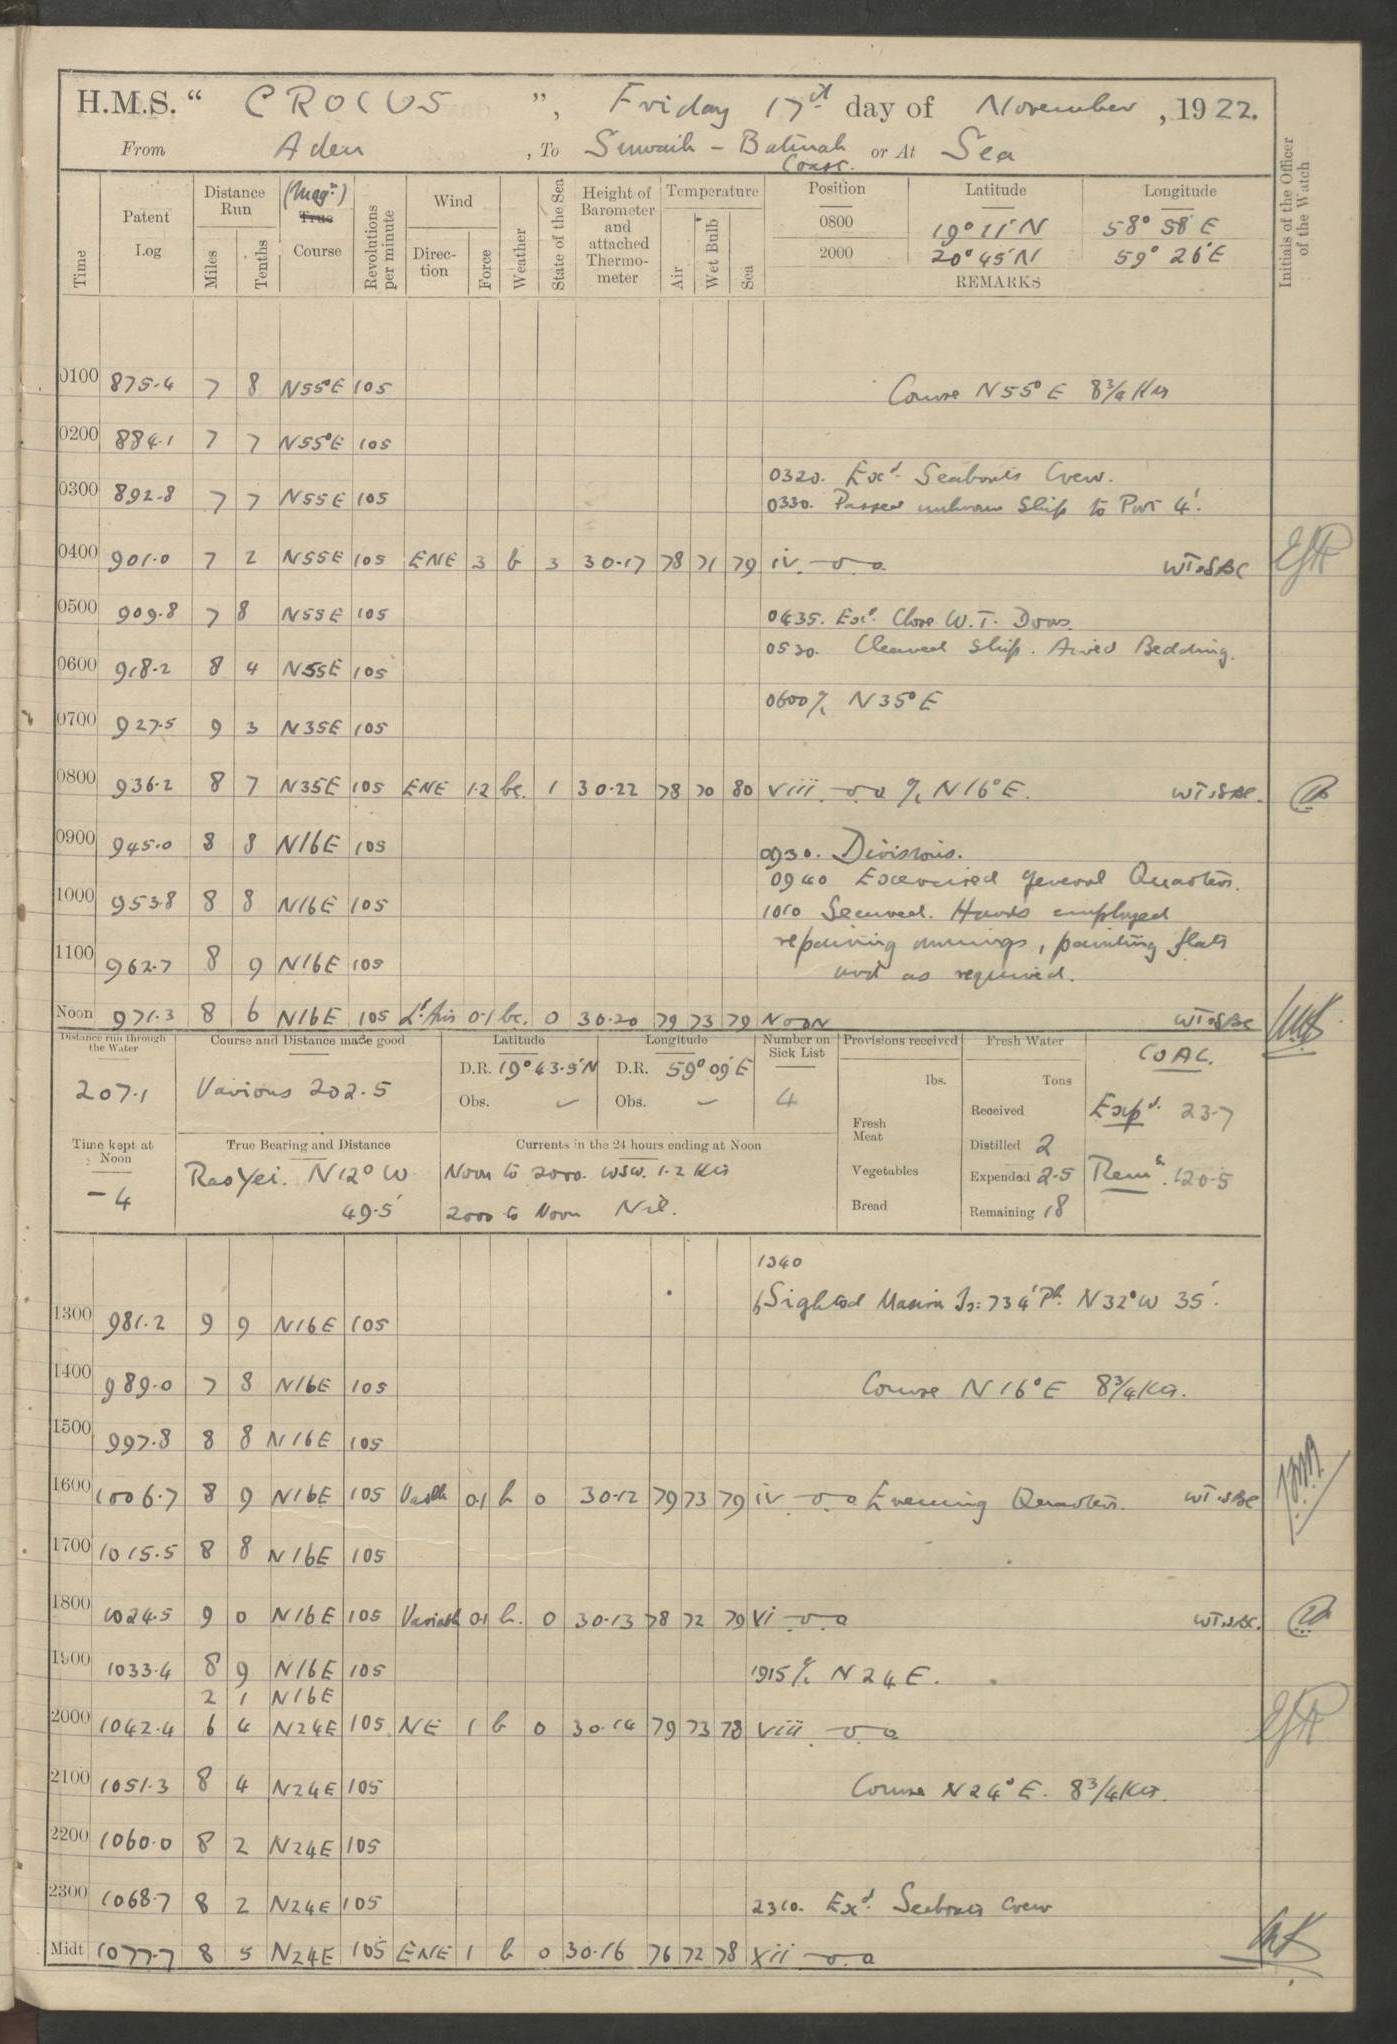 H.M.S. “ CROCUS ”, Friday 17th day of November, 1922.
From Aden, To Suwaik - Batinah Coast. or At Sea
Time
Patent Log
Distance Run
Miles
Tenths
(Mag.)
True
Course
Revolutions per minute
Wind
Direction
Force
Weather
State of the Sea
Height of Barometer and attached Thermometer
Temperature
Air
Wet Bulb
Sea
Position Latitude Longitude
0800 19° 11' N 58° 58' E
2000 20° 45' N 59° 26' E
REMARKS
Initials of the Officer of the Watch
0100 875.4 7 8 N55°E 105 Course N55° E 8¾ Kts
0200 884.1 7 7 N55°E 105
0320. Exd. Seaboats Crew.
0300 892.8 7 7 N55E 105 0330. Passed unknown Ship to Port 4'.
0400 901.0 7 2 N55E 105 ENE 3 b 3 30.17 78 71 79 iv. WT.SBC
0500 909.8 7 8 N55E 105 0435. Exd. Close W.T. Doors.
0530. Cleaned Ship. Aired Bedding.
0600 918.2 8 4 N55E 105
0600 % N35°E
0700 927.5 9 3 N35E 105
0800 936.2 8 7 N35E 105 ENE 1.2 bc. 1 30.22 78 70 80 viii % N16°E. WT.SBC.
0900 945.0 8 8 N16E 105 0930. Divisions.
0940 Exercised General Quarters.
1000 953.8 8 8 N16E 105 1010 Secured. Hands employed
repairing awnings, painting flats
1100 962.7 8 9 N16E 105 and as required.
Noon 971.3 8 6 N16E 105 Lt. Airs 0.1 bc. 0 30.20 79 73 79 NOON WT.SBC
Distance run through the Water
207.1
Course and Distance made good
Various 202.5
Latitude
D.R. 19° 43.5' N
Obs. –
Longitude
D.R. 59° 09' E
Obs. –
Number on Sick List
4
Provisions received
lbs.
Fresh Meat
Vegetables
Bread
Fresh Water
Tons
Received
Distilled 2
Expended 2.5
Remaining 18
COAL.
Expd. 23.7
Remg. 120.5
Time kept at Noon
-4
True Bearing and Distance
Ras Yei. N12° W
49.5'
Currents in the 24 hours ending at Noon
Noon to 2000. WSW. 1.2 Kts
2000 to Noon Nil.
1340
Sighted Masira Is: 734' Pk. N32°W 35'.
1300 981.2 9 9 N16E 105
1400 989.0 7 8 N16E 105 Course N16°E 8¾ Kts.
1500 997.8 8 8 N16E 105
1600 1006.7 8 9 N16E 105 Varble 0.1 b 0 30.12 79 73 79 iv Evening Quarters. WT.SBC
1700 1015.5 8 8 N16E 105
1800 1024.5 9 0 N16E 105 Variable 0.1 b. 0 30.13 78 72 79 vi WT.SBC.
1900 1033.4 8 9 N16E 105 1915 % N24E.
2 1 N16E
2000 1042.4 6 4 N24E 105 NE 1 b 0 30.14 79 73 78 viii
2100 1051.3 8 4 N24E 105 Course N24°E. 8¾ Kts.
2200 1060.0 8 2 N24E 105
2300 1068.7 8 2 N24E 105 2310. Exd. Seaboats Crew
Midt 1077.7 8 5 N24E 105 ENE 1 b 0 30.16 76 72 78 xii